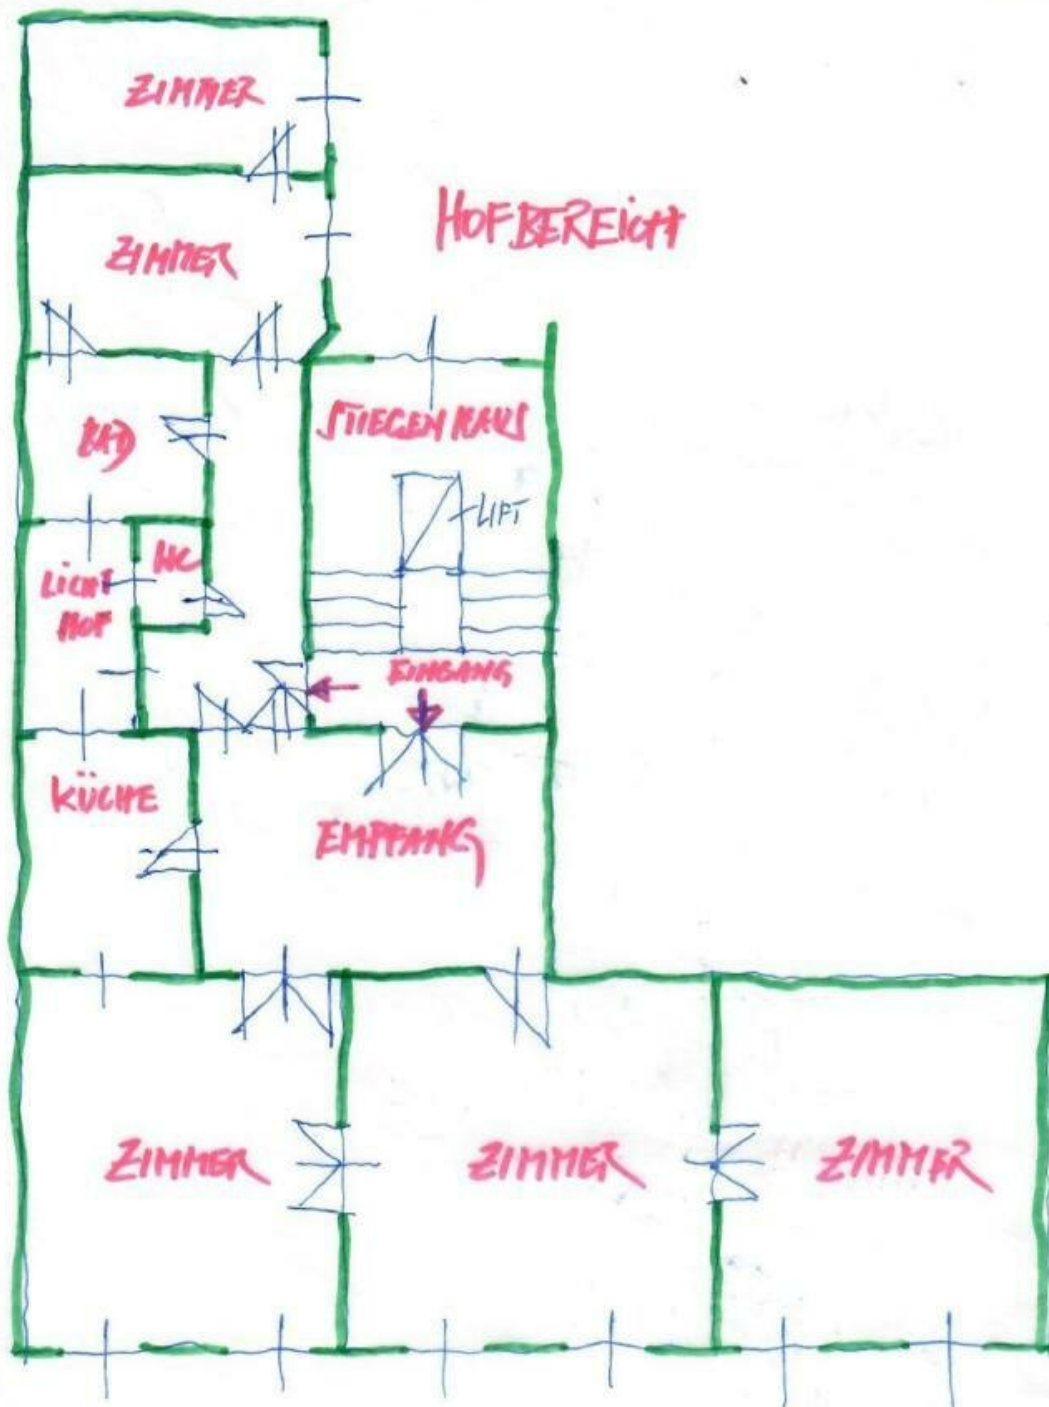 ZIMMER
ZIMMER
HOFBEREICH
BAD
STIEGENHAUS
LIFT
WC
LICHT
HOF
EINGANG
KÜCHE
EMPFANG
ZIMMER
ZIMMER
ZIMMER